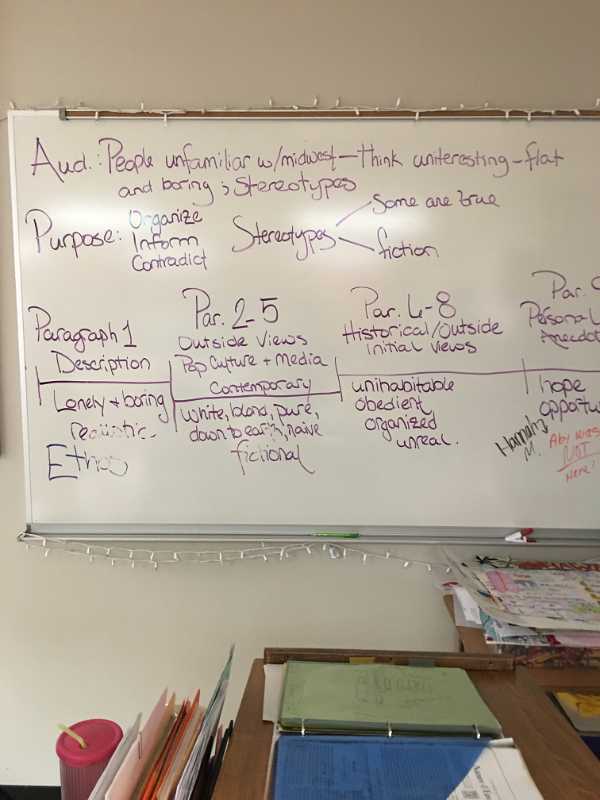 Aud.: People unfamiliar w/midwest—think uniteresting-flat
and boring ; Stereotypes
Purpose: Organize
Inform
Contradict
Stereotypes
Some are true
fiction
Paragraph 1
Description
Lonely + boring
realistic
Ethos
Par. 2-5
Outside Views
Pop Culture + Media
Contemporary
white, bland, pure,
down to earth, naive
fictional
Par. 6-8
Historical/Outside
Initial Views
uninhabitable
obedient
organized
unreal.
Par.
Personal
Anecdot
hope
opportu
Hannah
M.
Aby was
NOT
Here!